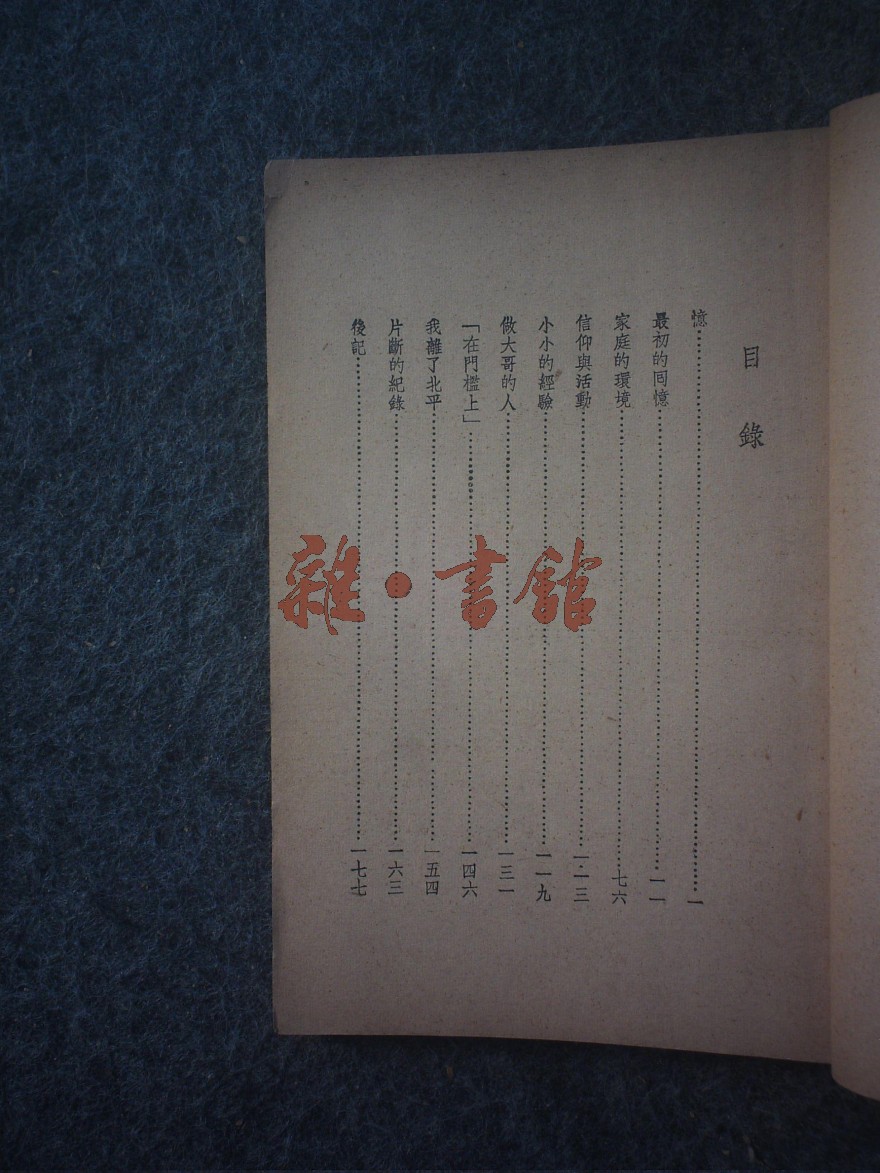 目錄
憶……一
最初的回憶……一一
家庭的環境……七六
信仰與活動……一一三
小小的經驗……一一九
做大哥的人……一三一
「在門檻上」……一四六
我離了北平……一五四
片斷的紀錄……一六三
後記……一七七
雜·書館